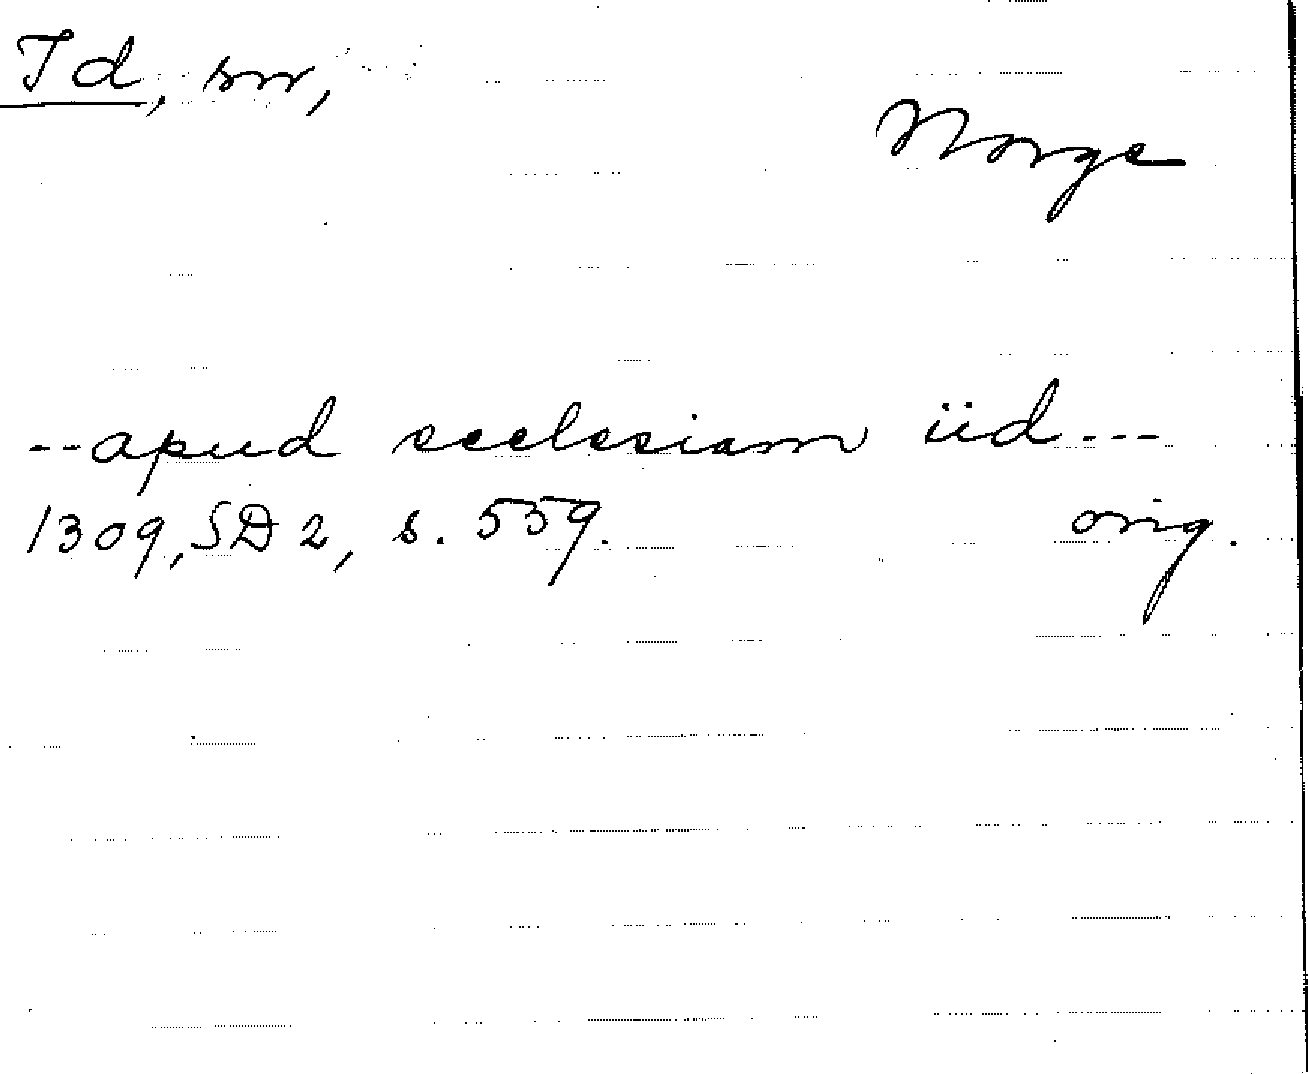 Id, sn,
Norge
--apud ecclesiam iid---
1309, SD 2, s. 559. orig.